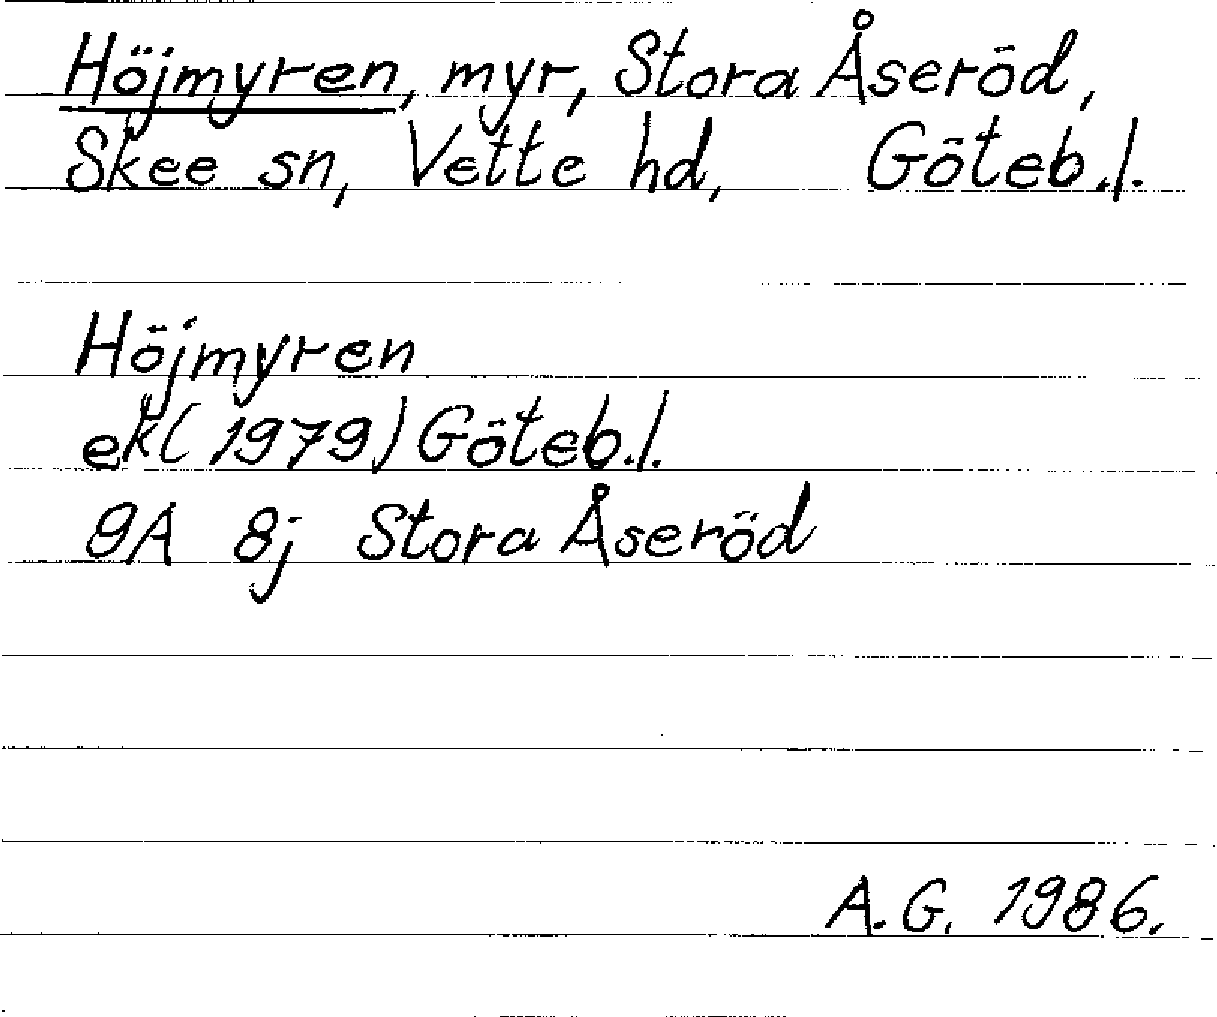 Höjmyren, myr, Stora Åseröd,
Skee sn, Vette hd, Göteb.l.
Höjmyren
ek (1979) Göteb.l.
9A 8j Stora Åseröd
A.G. 1986.